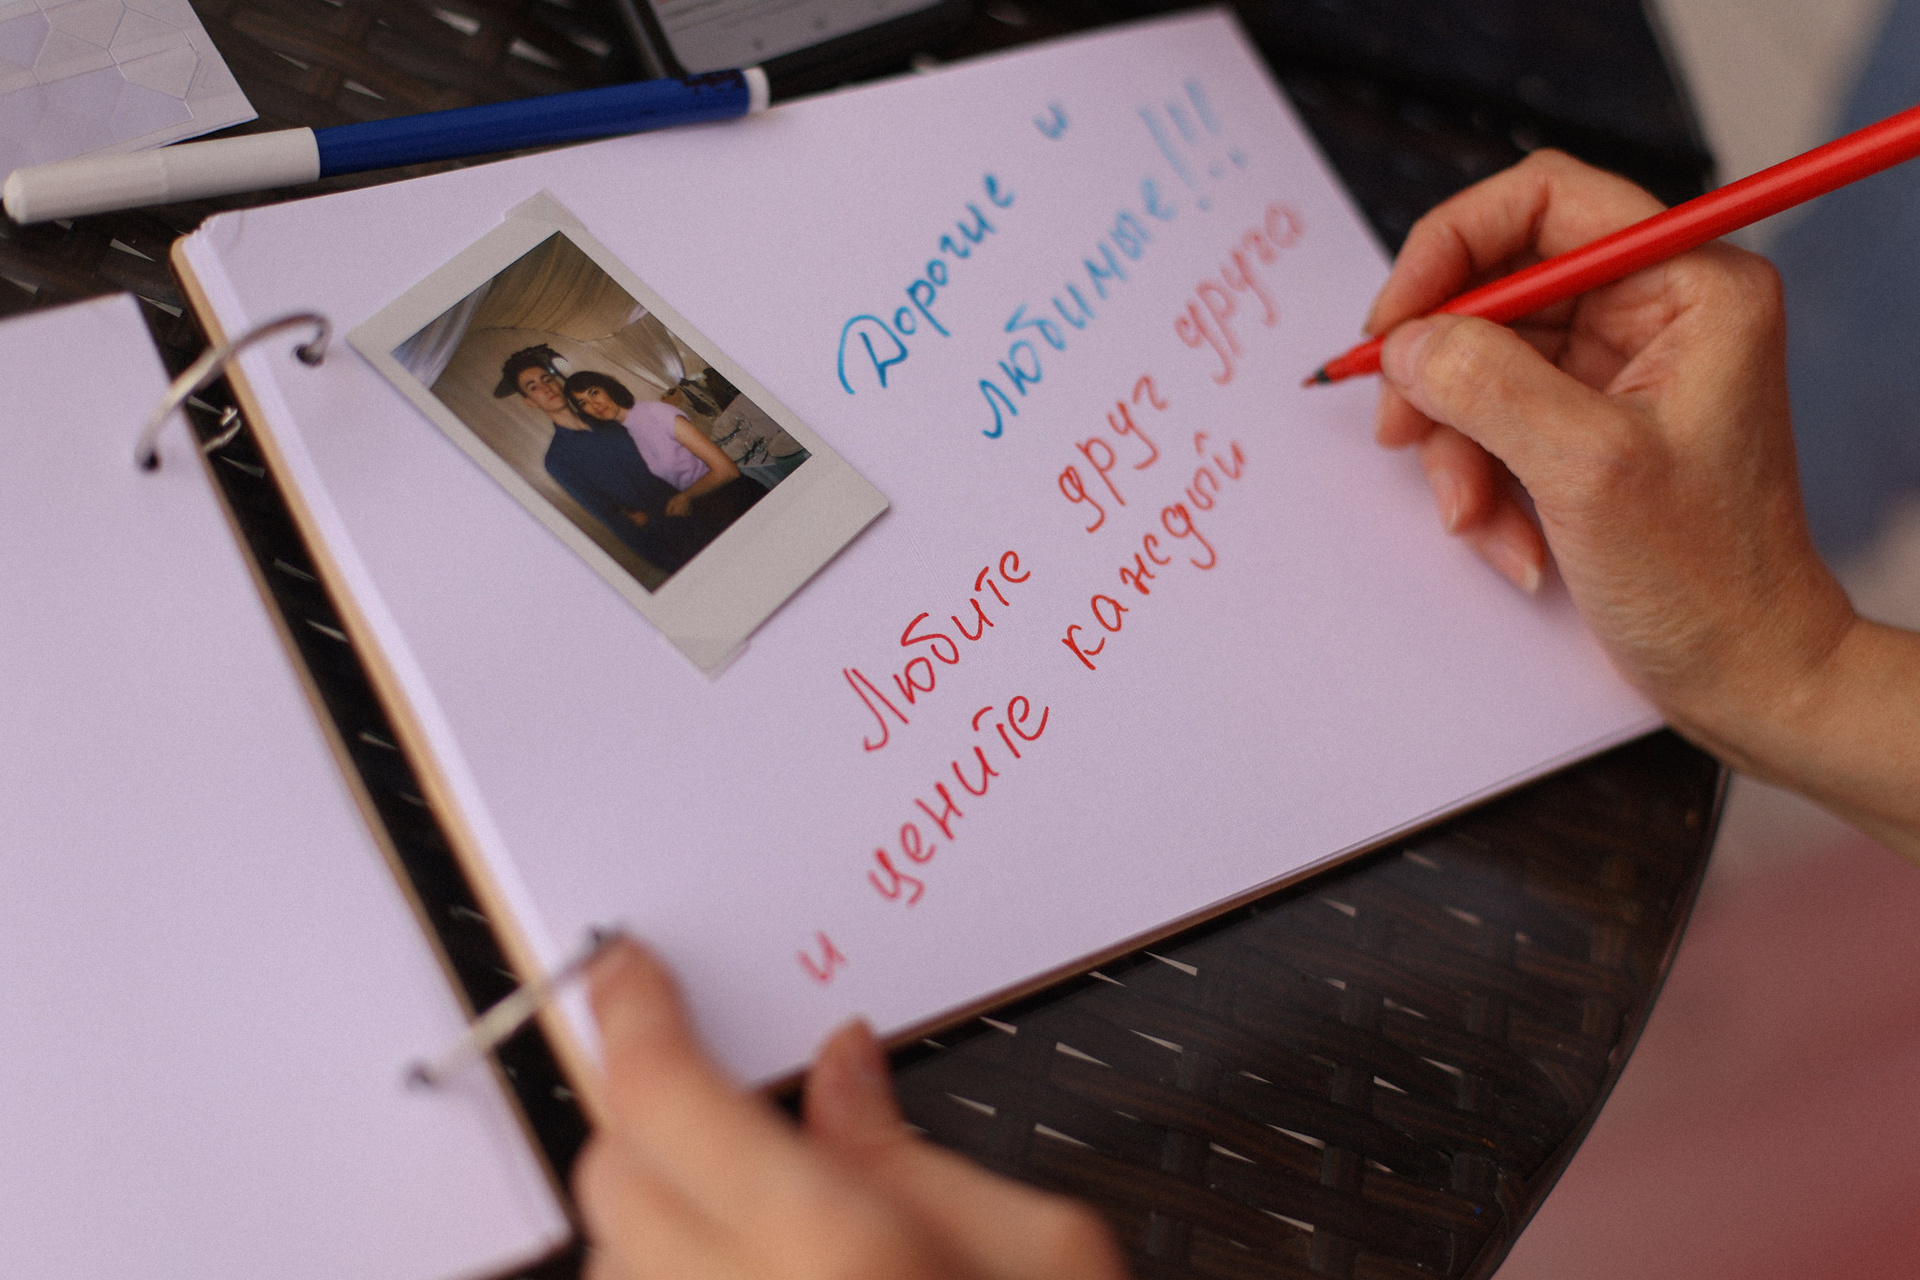 Дорогие и
любимые!!!
Любите друг друга
и цените каждый